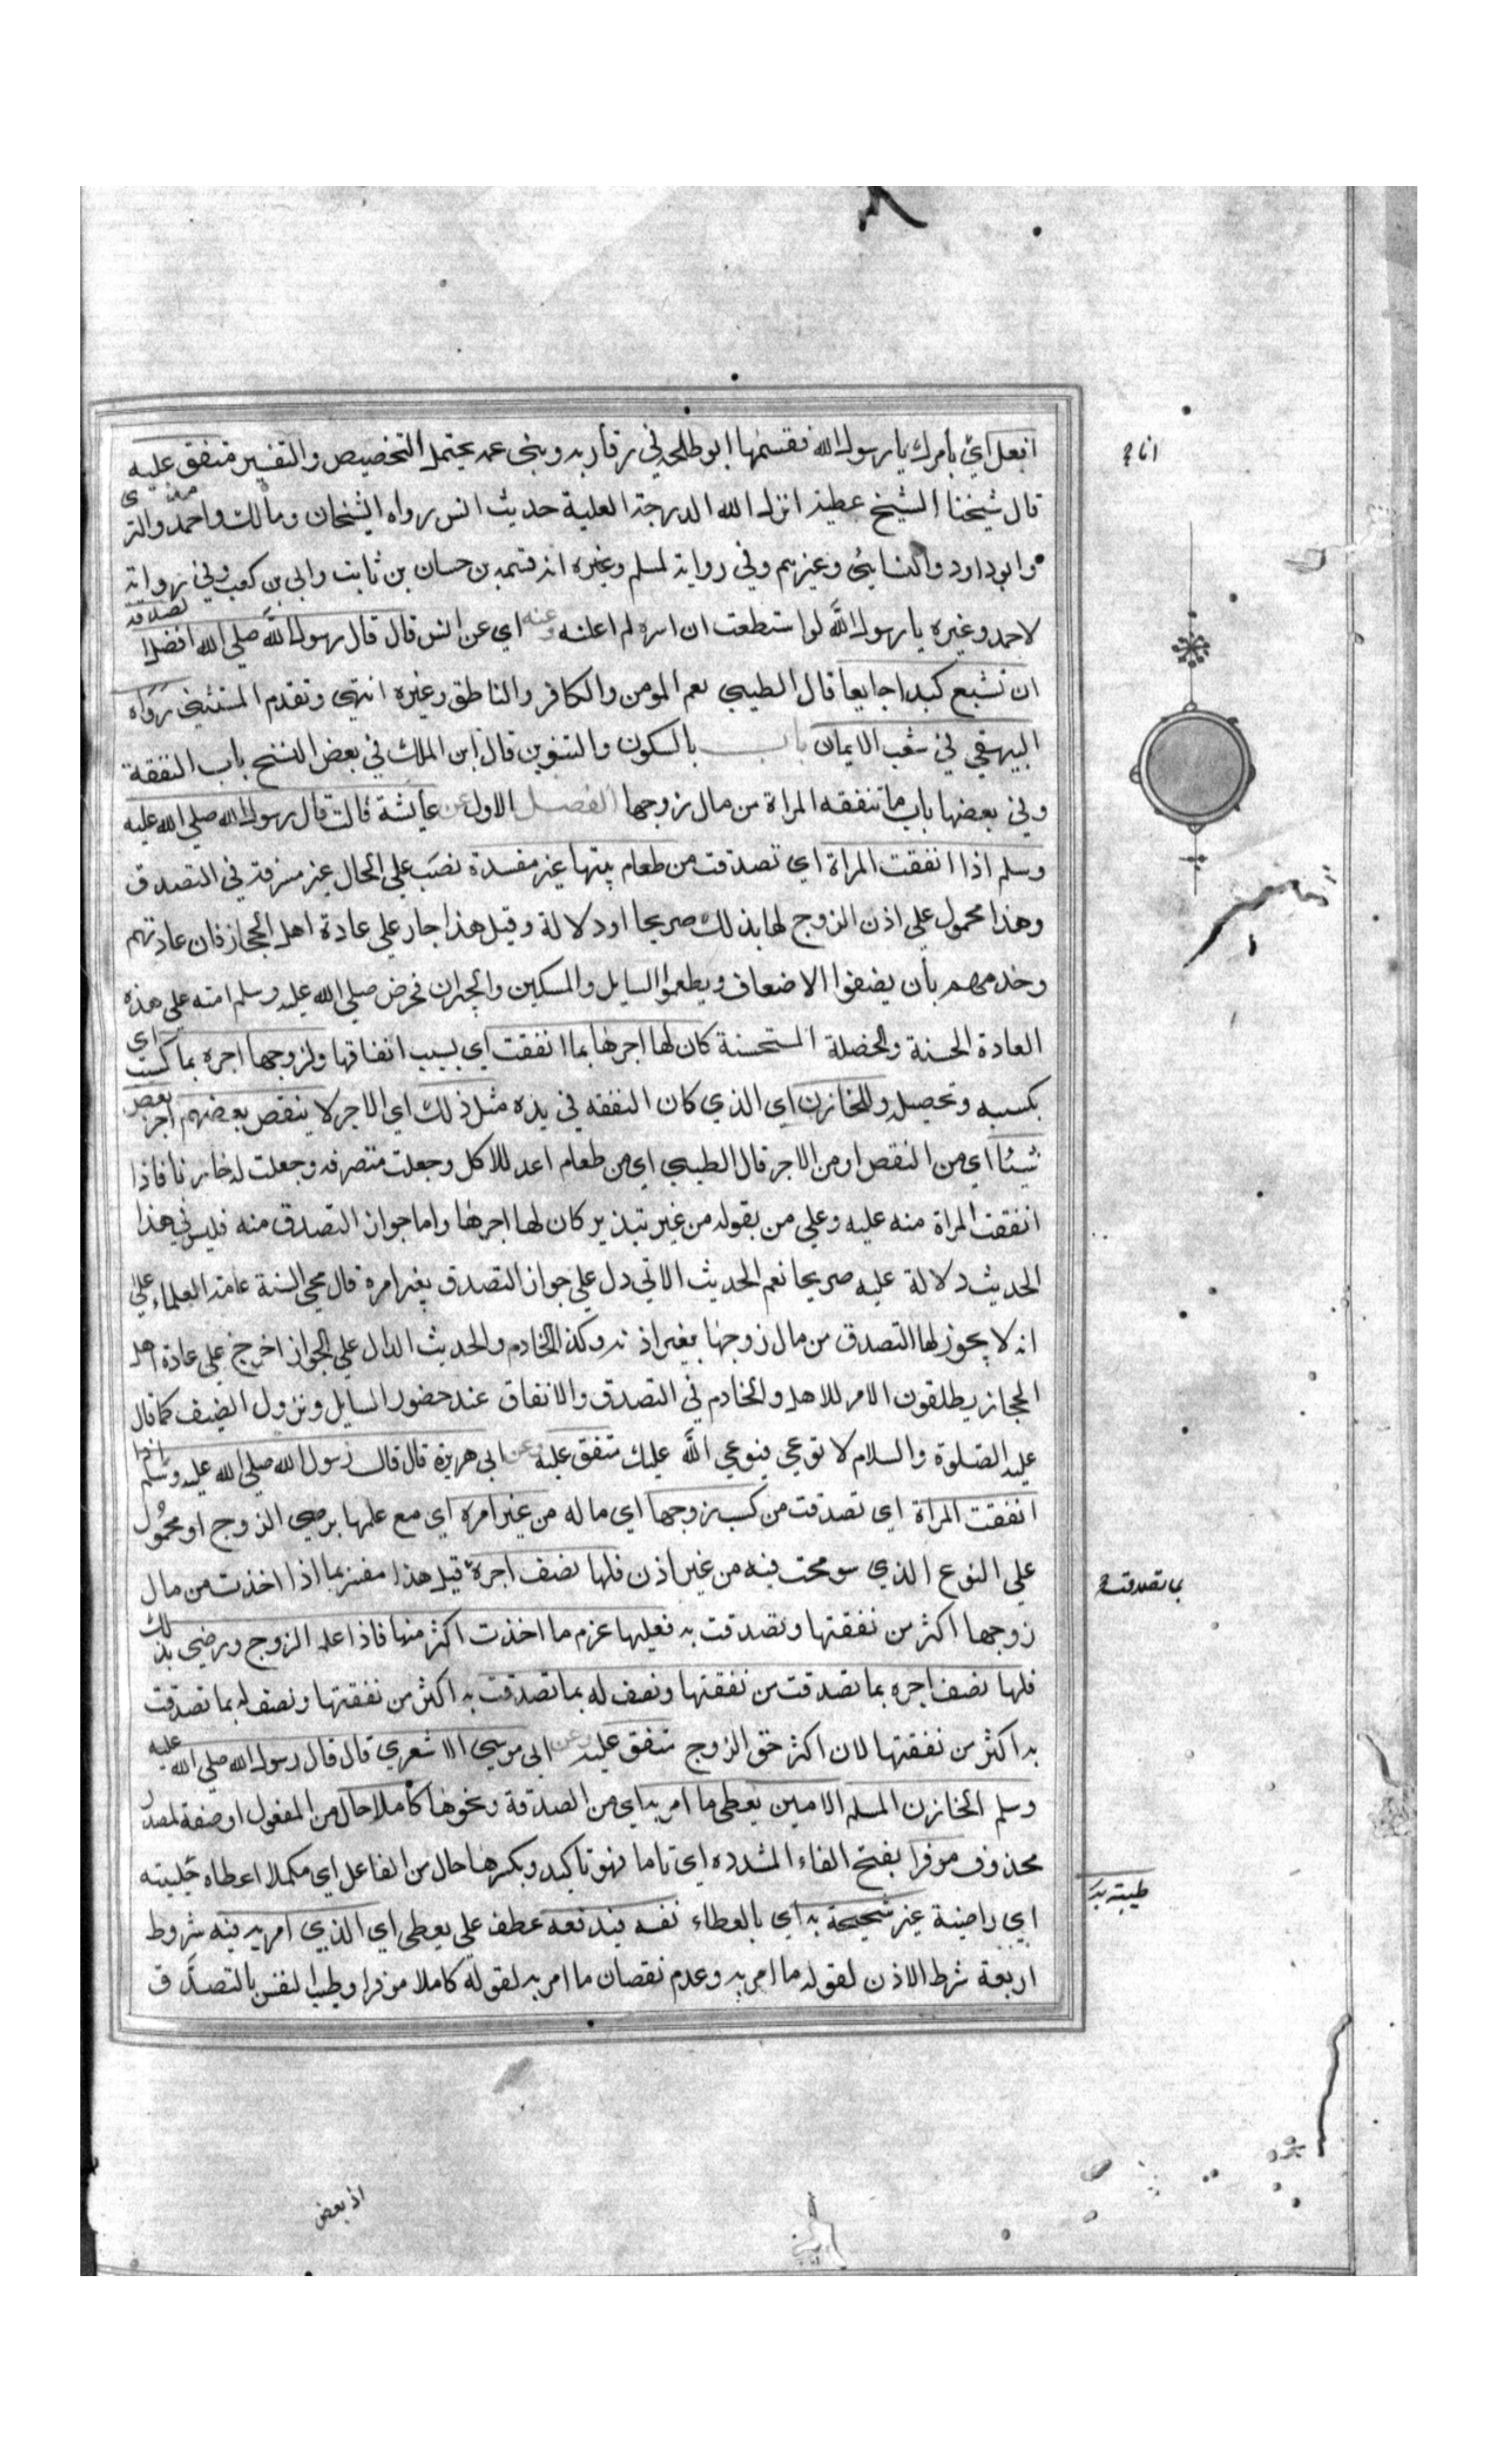 افعل اي بأمرك يا رسول الله فقسمها ابو طلحة في اقاربه وبني عمه يحتمل التخصيص والتفسير متفق عليه
قال شيخنا الشيخ عطية انزله الله الدرجة العلية حديث انس رواه الشيخان ومالك واحمد والترمذي
وابوداود والنسائي وغيرهم وفي رواية لمسلم وغيره انه قسمه بن حسان بن ثابت وابي بن كعب وفي رواية
لاحمد وغيره يا رسول الله لو استطعت ان اسره لم اعلنه وعنه اي عن انس قال قال رسول الله صلى الله افضل الصدقة
ان تشبع كبدا جايعا قال الطيبي يعم المومن والكافر والناطق وغيره انتهى وتقدم المستثنى رواه
البيهقي في شعب الايمان باب بالسكون والتنوين قال ابن الملك في بعض النسخ باب النفقة
وفي بعضها باب ما تنفقه المراة من مال زوجها الفصل الاول عن عايشة قالت قال رسول الله صلى الله عليه
وسلم اذا انفقت المراة اي تصدقت من طعام بيتها غير مفسدة نصب على الحال غير مسرفة في التصدق
وهذا محمول على اذن الزوج لها بذلك صريحا او دلالة وقيل هذا جار على عادة اهل الحجاز فان عادتهم
وخدمهم بأن يضيفوا الاضعاف ويطعموا السايل والمسكين والجيران فحرض صلى الله عليه وسلم امته على هذه
العادة الحسنة والخصلة المستحسنة كان لها اجرها بما انفقت اي بسبب انفاقها ولزوجها اجره بما كسب اي
بكسبه وتحصيله وللخازن اي الذي كان النفقة في يده مثل ذلك اي الاجر لا ينقص بعضهم اجر بعض
شيئا اي من النقص او من الاجر قال الطيبي اي من طعام اعد للاكل وجعلت متصرفه وجعلت له خازنا فاذا
انفقت المراة منه عليه وعلى من يقوله من غير تبذير كان لها اجرها واما جواز التصدق منه فليس في هذا
الحديث دلالة عليه صريحا نعم الحديث الاتي دل على جواز التصدق بغير امره قال محي السنة عامة العلماء على
انه لا يجوز لها التصدق من مال زوجها بغير اذنه وكذا الخادم والحديث الدال على الجواز اخرج على عادة اهل
الحجاز يطلقون الامر للاهل والخادم في التصدق والانفاق عند حضور السايل ونزول الضيف كما قال
عليه الصلوة والسلام لا توعي فيوعي الله عليك متفق عليه وعن ابي هريرة قال قال رسول الله صلى الله عليه وسلم اذا
انفقت المراة اي تصدقت من كسب زوجها اي ماله من غير امره اي مع علمها برضى الزوج او محمول
على النوع الذي سومحت فيه من غير اذن فلها نصف اجره قيل هذا مفسر بما اذا اخذت من مال
زوجها اكثر من نفقتها وتصدقت به فعليها غرم ما اخذت اكثر منها فاذا علم الزوج ورضي بذلك
فلها نصف اجره بما تصدقت من نفقتها ونصف له بما تصدقت به اكثر من نفقتها ونصف له بما تصدقت
به اكثر من نفقتها لان اكثر حق الزوج متفق عليه وعن ابي موسى الاشعري قال قال رسول الله صلى الله عليه
وسلم الخازن المسلم الامين يعطى ما امر به اي من الصدقة ونحوها كاملا حال من المفعول او صفة لمصدر
محذوف موفرا بفتح الفاء المشدده اي تاما فهو تاكيد وبكسرها حال من الفاعل اي مكملا اعطاه
اي راضية غير شحيحة به اي بالعطاء نفسه فيدفعه عطف على يعطى اي الذي امر به فيه شروط
اربعة شرط الاذن لقوله ما امر به وعدم نقصان ما امر به لقوله كاملا موفرا وطيب النفس بالتصدق
بما تصدقت
طيبة به
اذ بعض